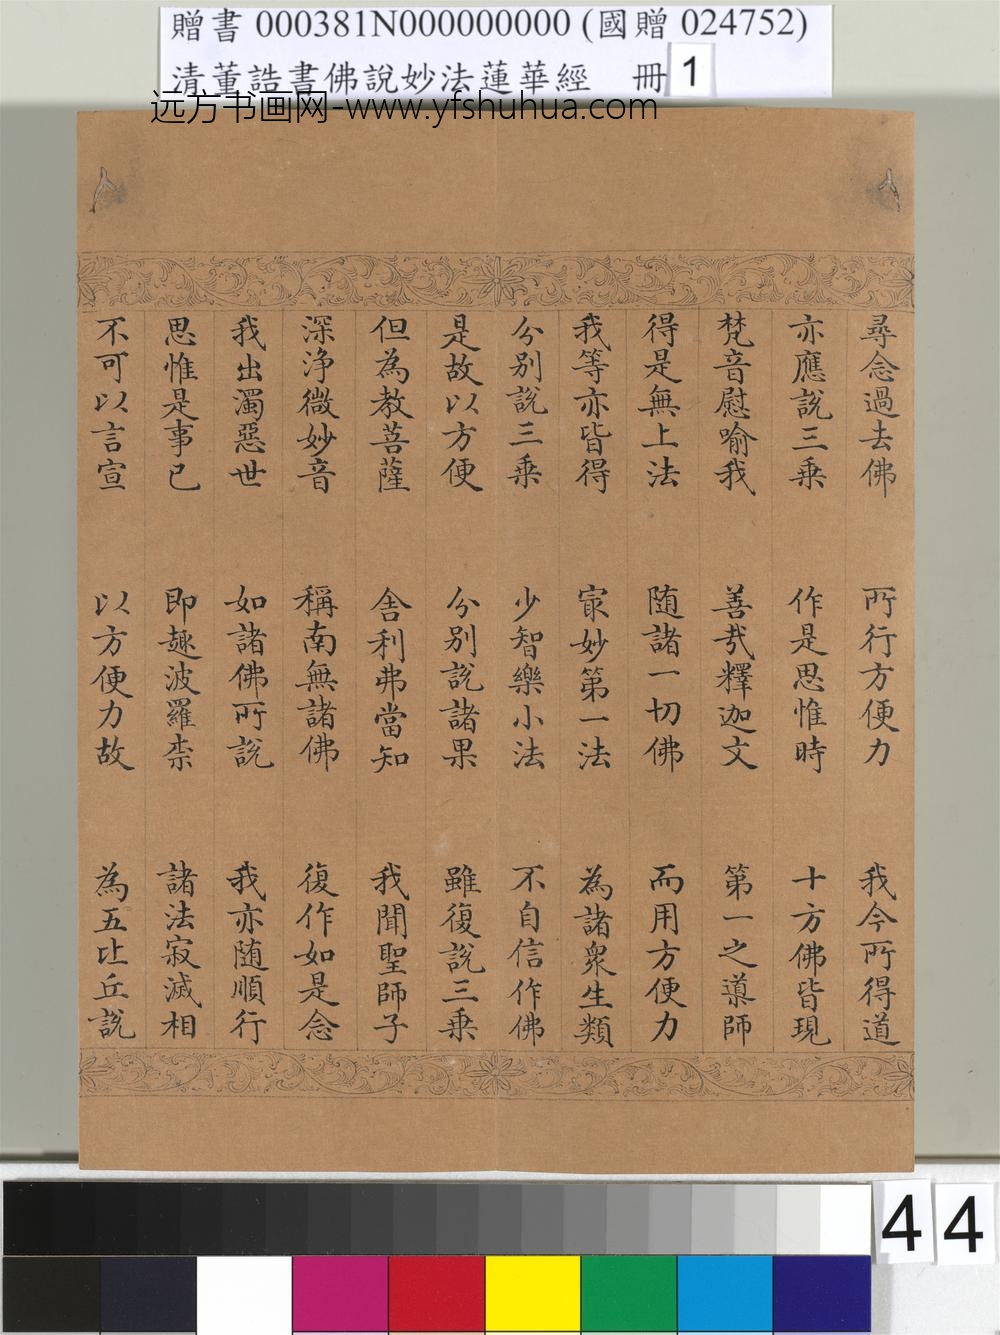 贈書 000381N000000000 (國贈 024752)
清董誥書佛說妙法蓮華經 冊 1
远方书画网-www.yfshuhua.com
尋念過去佛 所行方便力 我今所得道
亦應說三乘 作是思惟時 十方佛皆現
梵音慰喻我 善哉釋迦文 第一之導師
得是無上法 随諸一切佛 而用方便力
我等亦皆得 冣妙第一法 為諸衆生類
分別說三乘 少智樂小法 不自信作佛
是故以方便 分別説諸果 雖復說三乘
但為教菩薩 舍利弗當知 我聞聖師子
深浄微妙音 稱南無諸佛 復作如是念
我出濁惡世 如諸佛所說 我亦随順行
思惟是事已 即趣波羅柰 諸法寂滅相
不可以言宣 以方便力故 為五比丘說
44